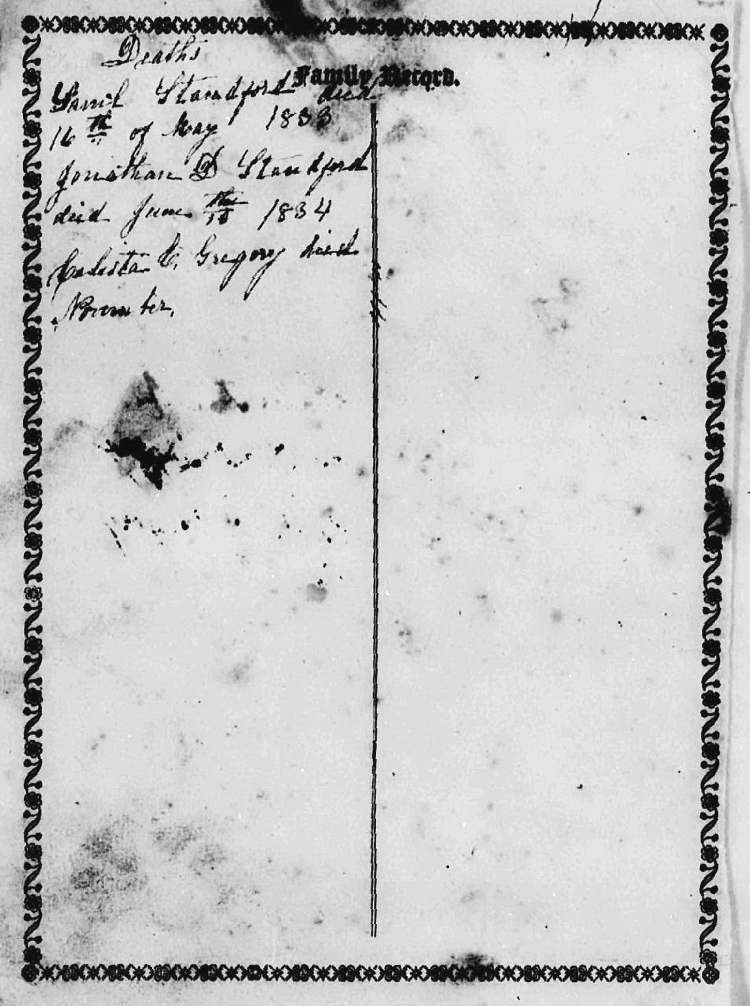 Deaths
Family Record.
Standford died
16th of May 1833
Jonathan D Standford
died June 18th 1834
Calista C. Gregory died
November,